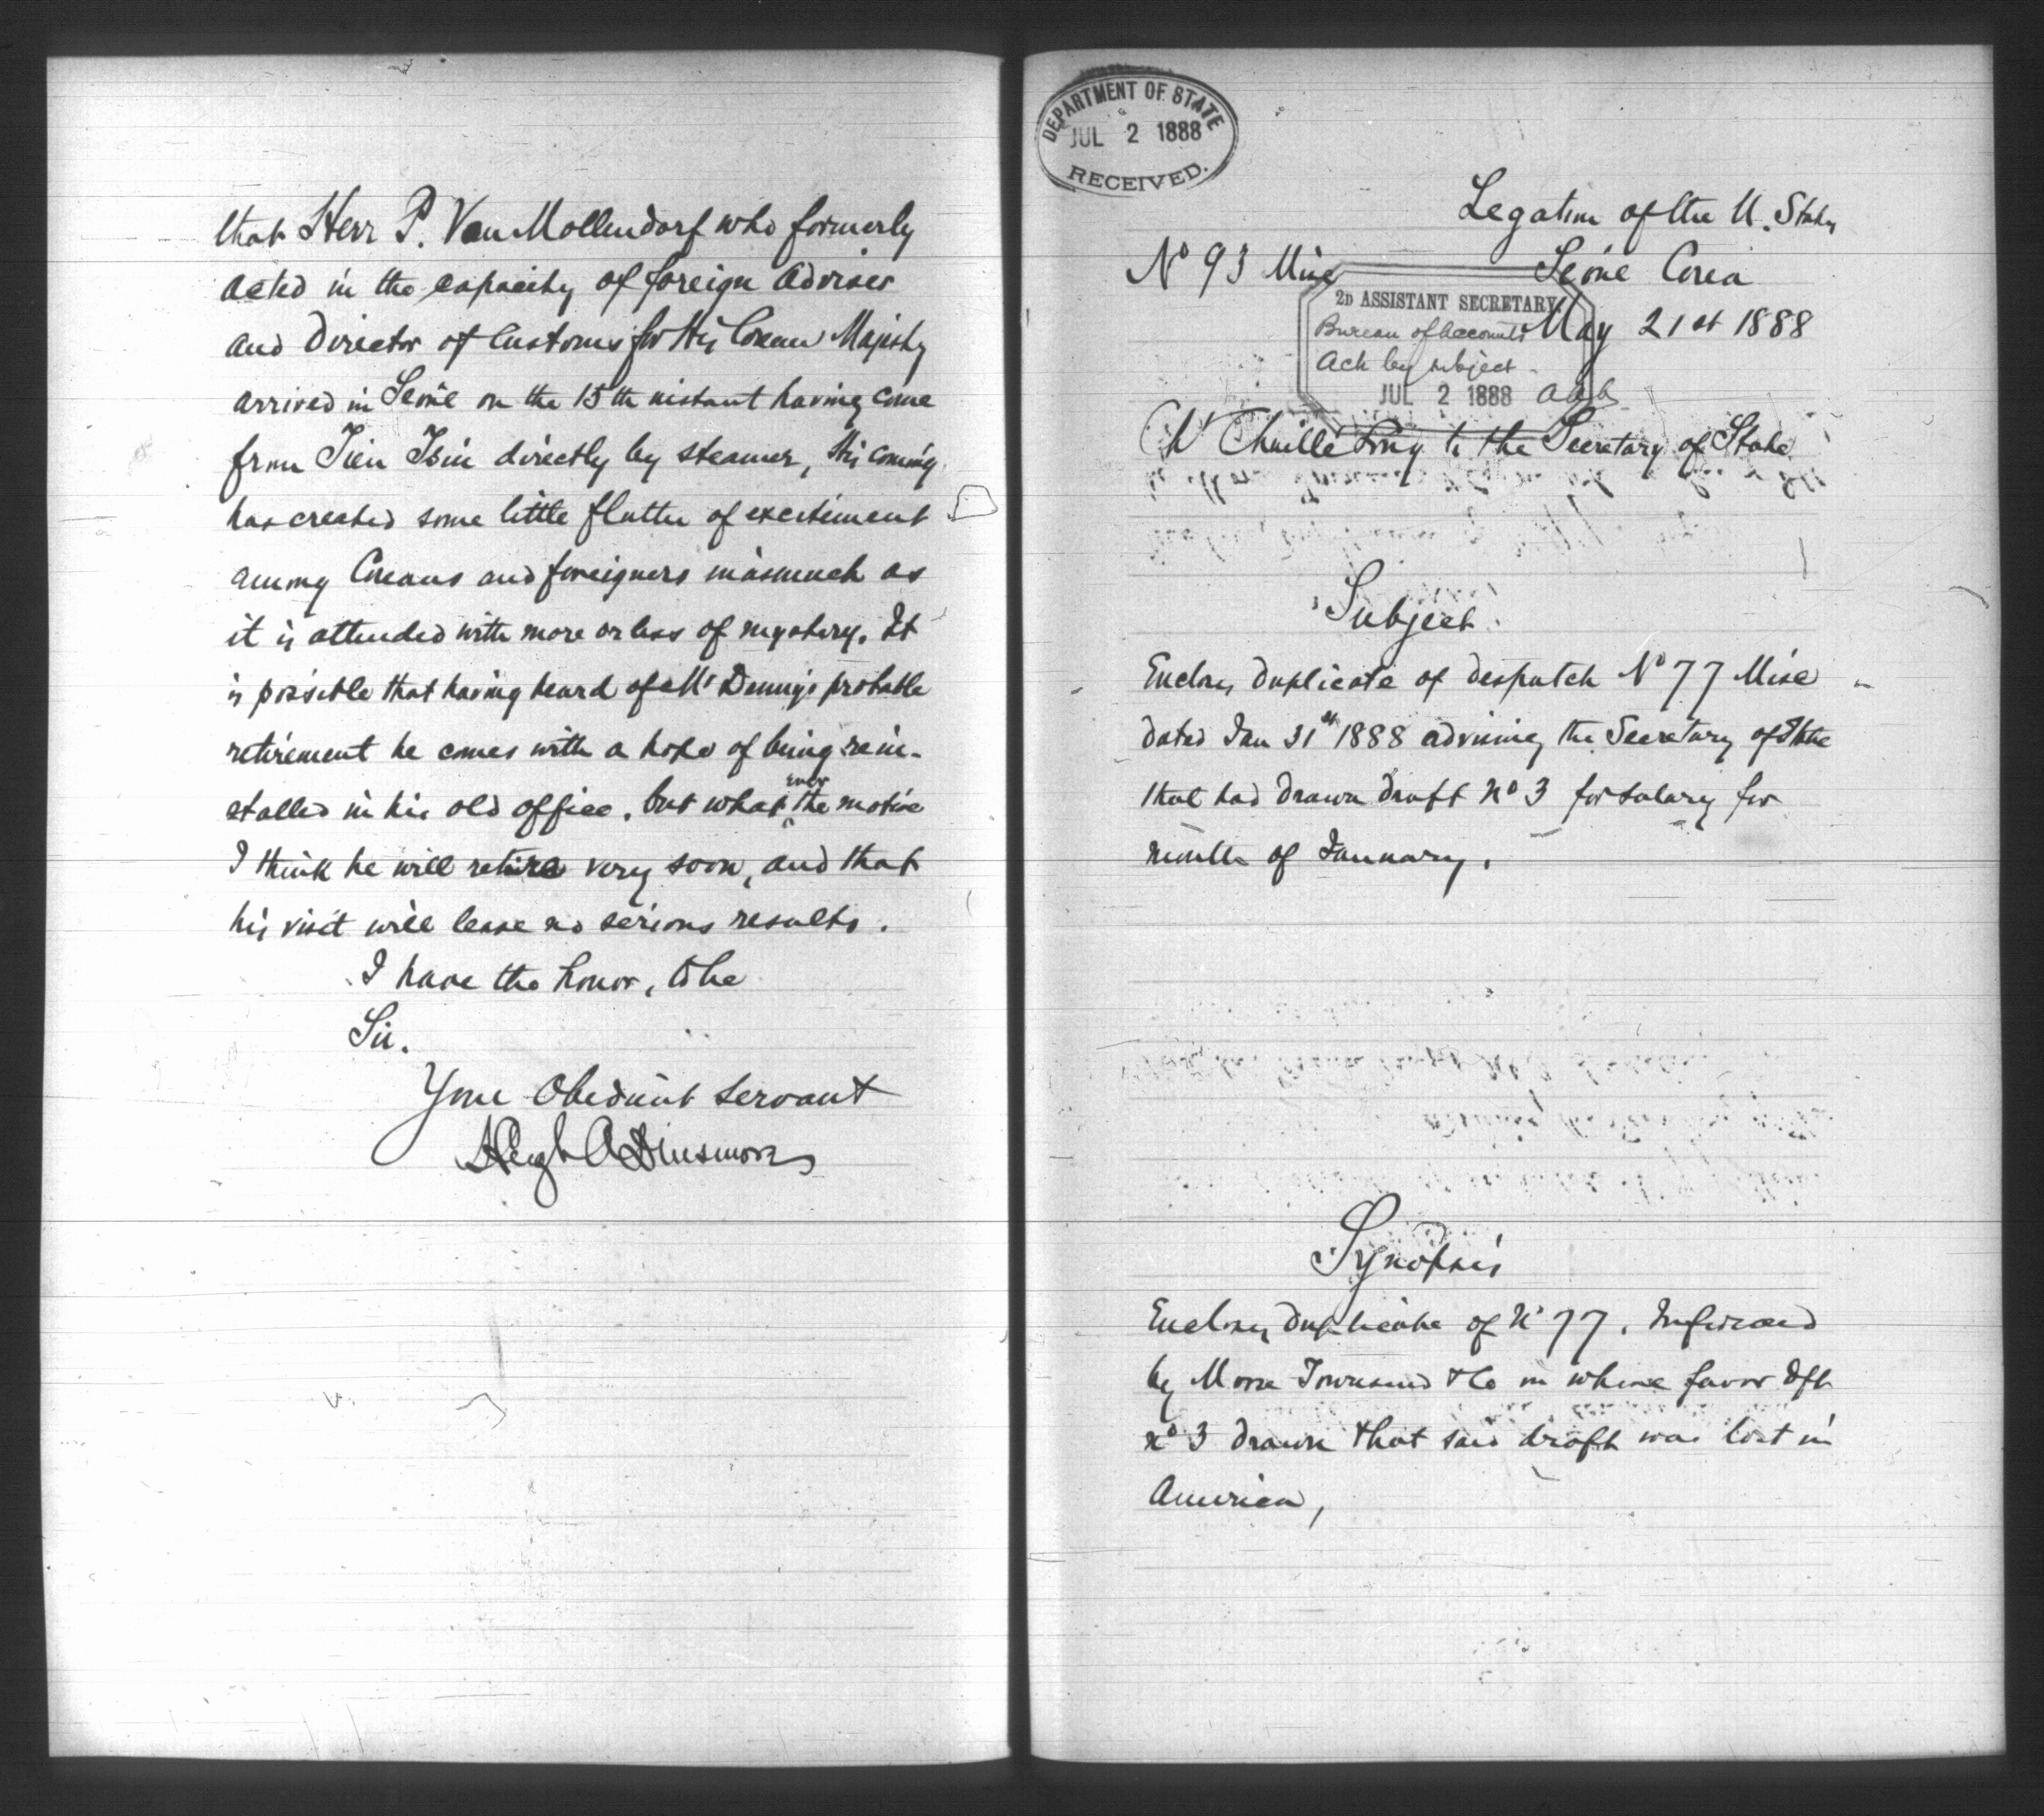 that Herr P. Von Mollendorf who formerly
acted in the capacity of foreign adviser
and Director of Customs for His Corean Majesty
arrived in Seoul on the 15th instant having come
from Tien Tsin directly by steamer, His coming
has created some little flutter of excitement
among Coreans and foreigners inasmuch as
it is attended with more or less of mystery. It
is possible that having heard of Mr Denny's probable
retirement he comes with a hope of being rein-
stalled in his old office. but what ever the motive
I think he will retire very soon, and that
his visit will leave no serious results.
I have the honor, to be
Sir.
Your Obedient servant
Hugh A Dinsmore
DEPARTMENT OF STATE
JUL 2 1888
RECEIVED.
Legation of the U. States
No 93 Misc Seoul Corea
May 21st 1888
2D ASSISTANT SECRETARY
Bureau of Accounts
Ack by subject
JUL 2 1888
Ch Chaillé Long to the Secretary of State
Subject.
Encloses duplicate of despatch No 77 Misc
dated Jan 31st 1888 advising the Secretary of State
that had drawn draft No 3 for salary for
month of January.
Synopsis
Encloses duplicate of No 77. Informed
by Morse Townsend & Co in whose favor dft
No 3 drawn that said draft was lost in
America,